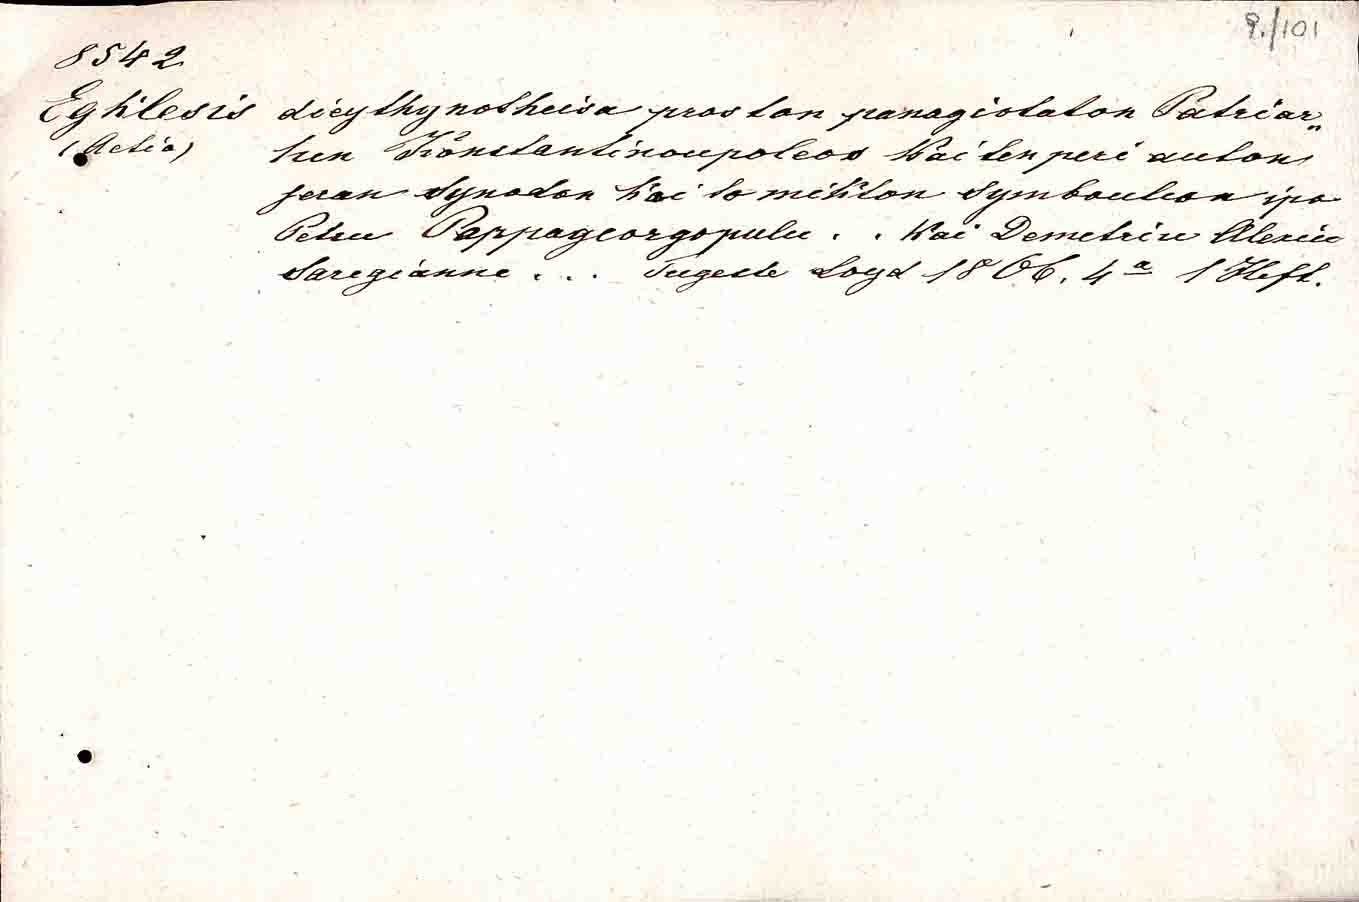 9./101
8542
Egklesis dieythynotheisa pros ton panagiotaton Patriar„
(Actio) hen Könstantinoupoleos kai ten peri auton
jeran Synodon kai to mikton Symboulion ipo
Petru Pappageorgopulu . . kai Demetriu Alexiu
Saregianne . . . Tergeste Loyd 1866. 4a 1 Heft.